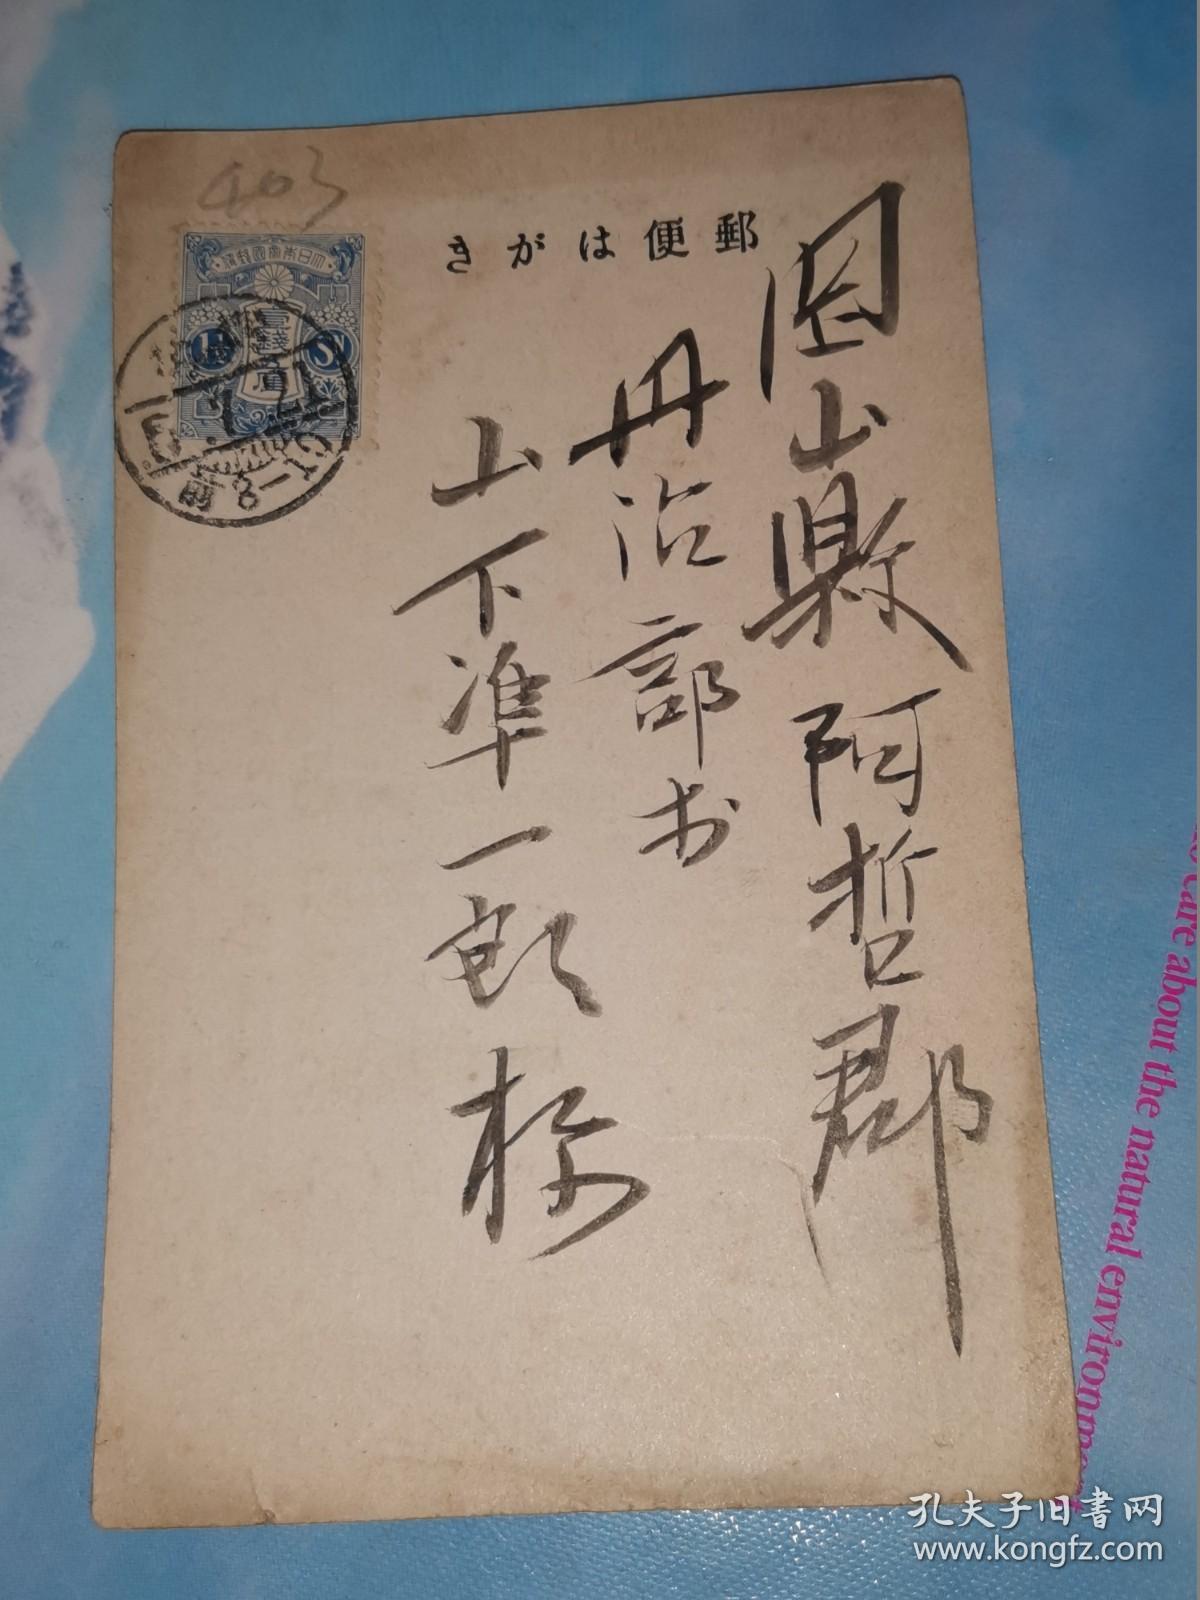 403
郵便はがき
大日本帝國郵便
壹錢五厘
1½ Sn
前 8-10
岡山縣阿哲郡
丹治部村
山下準一郎様
to care about the natural environment
孔夫子旧书网
www.kongfz.com